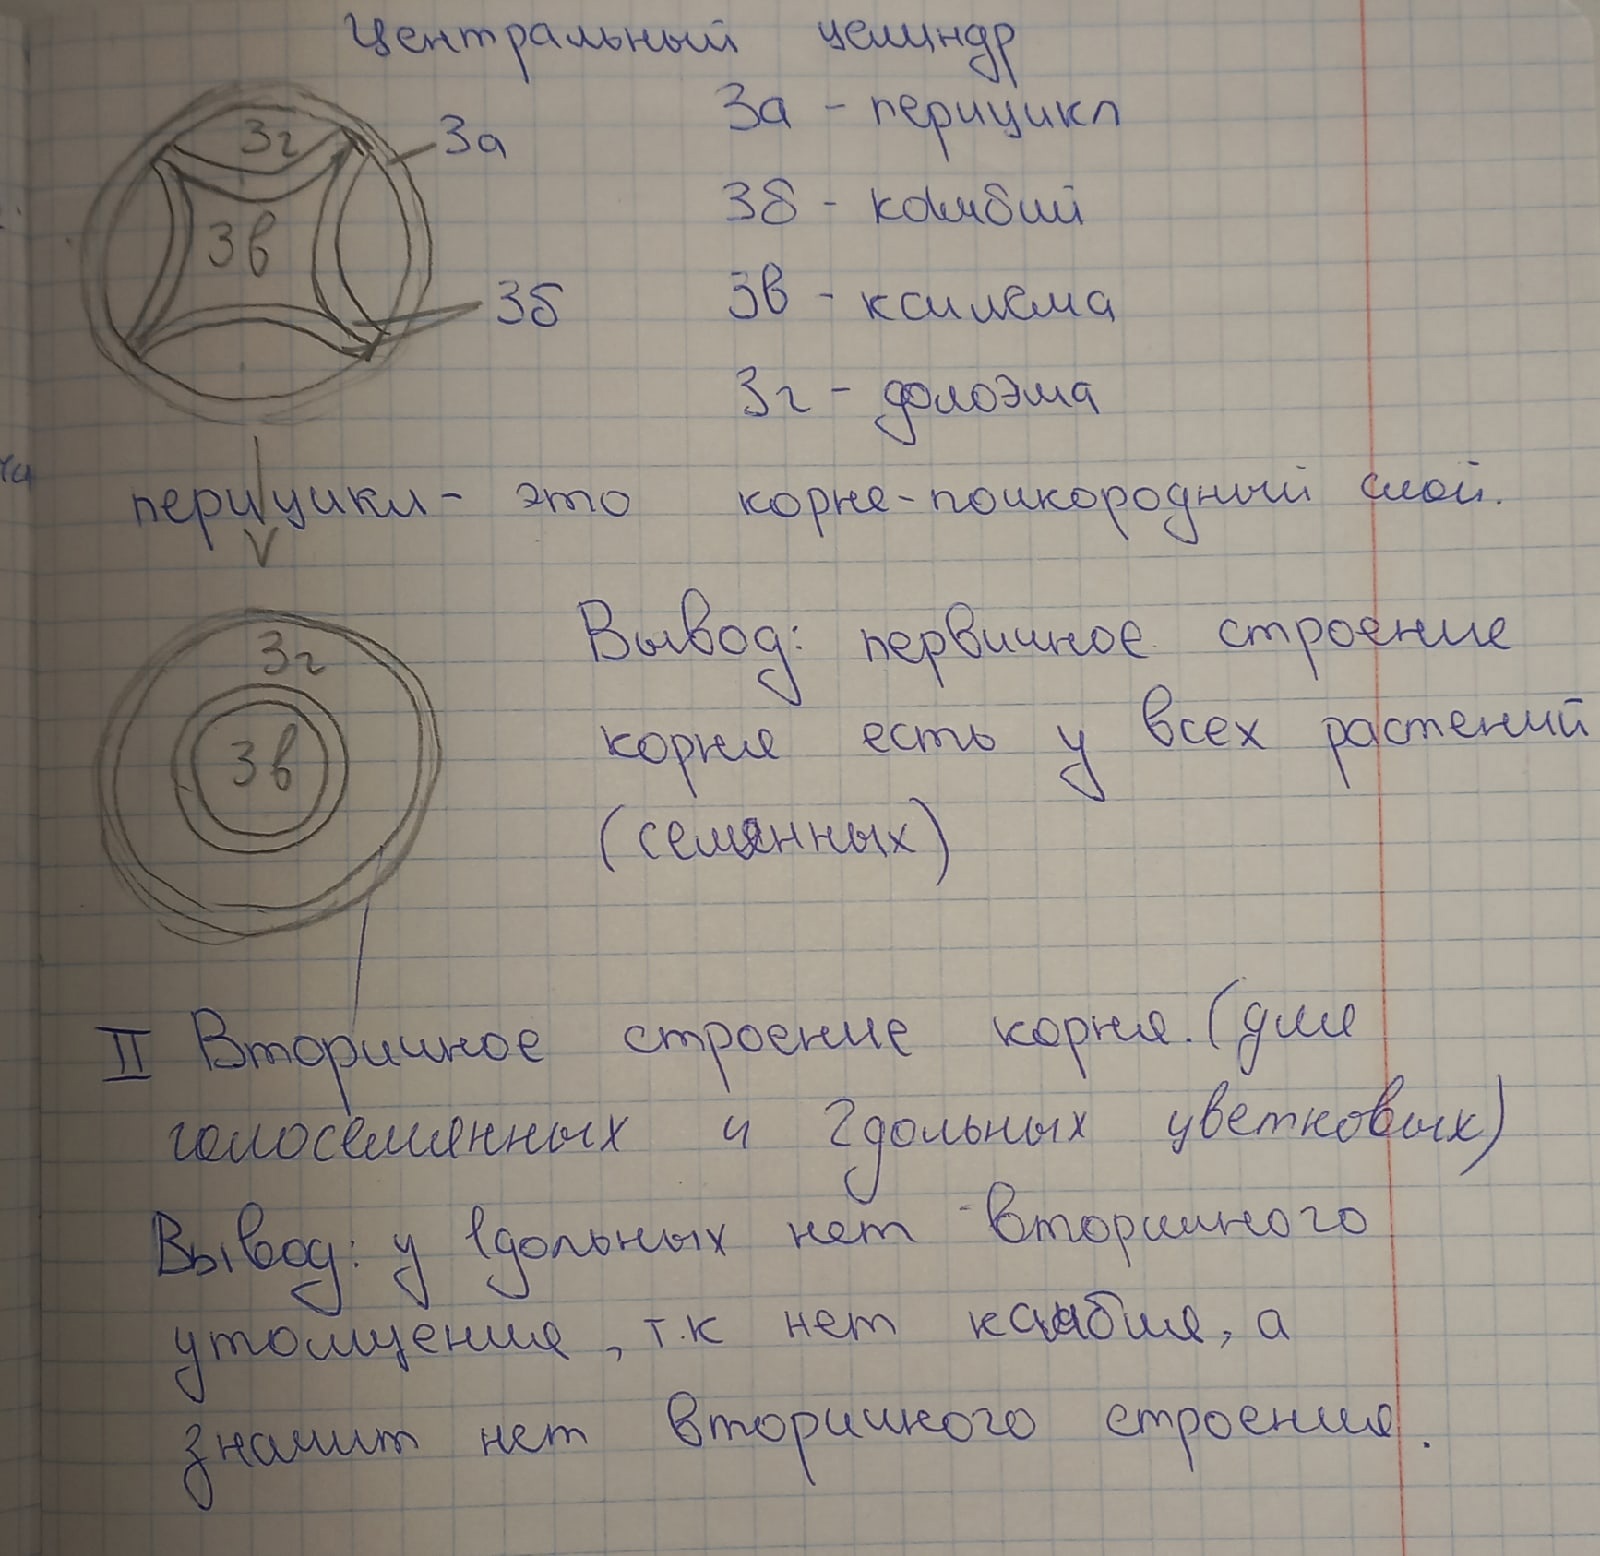 Центральный целиндр
3г
3а
3а - перицикл
3в
3б
3б - камбий
3в - ксилема
3г - фолоэма
перицикл - это корне-поикородный слой.
3г
3в
Вывод: первичное строение
корня есть у всех растений
(семянных)
II Вторичное строение корня. (для
голосемянных и 2дольных цветковых)
Вывод: у 1дольных нет вторичного
утолщения, т.к нет камбия, а
значит нет вторичного строения.